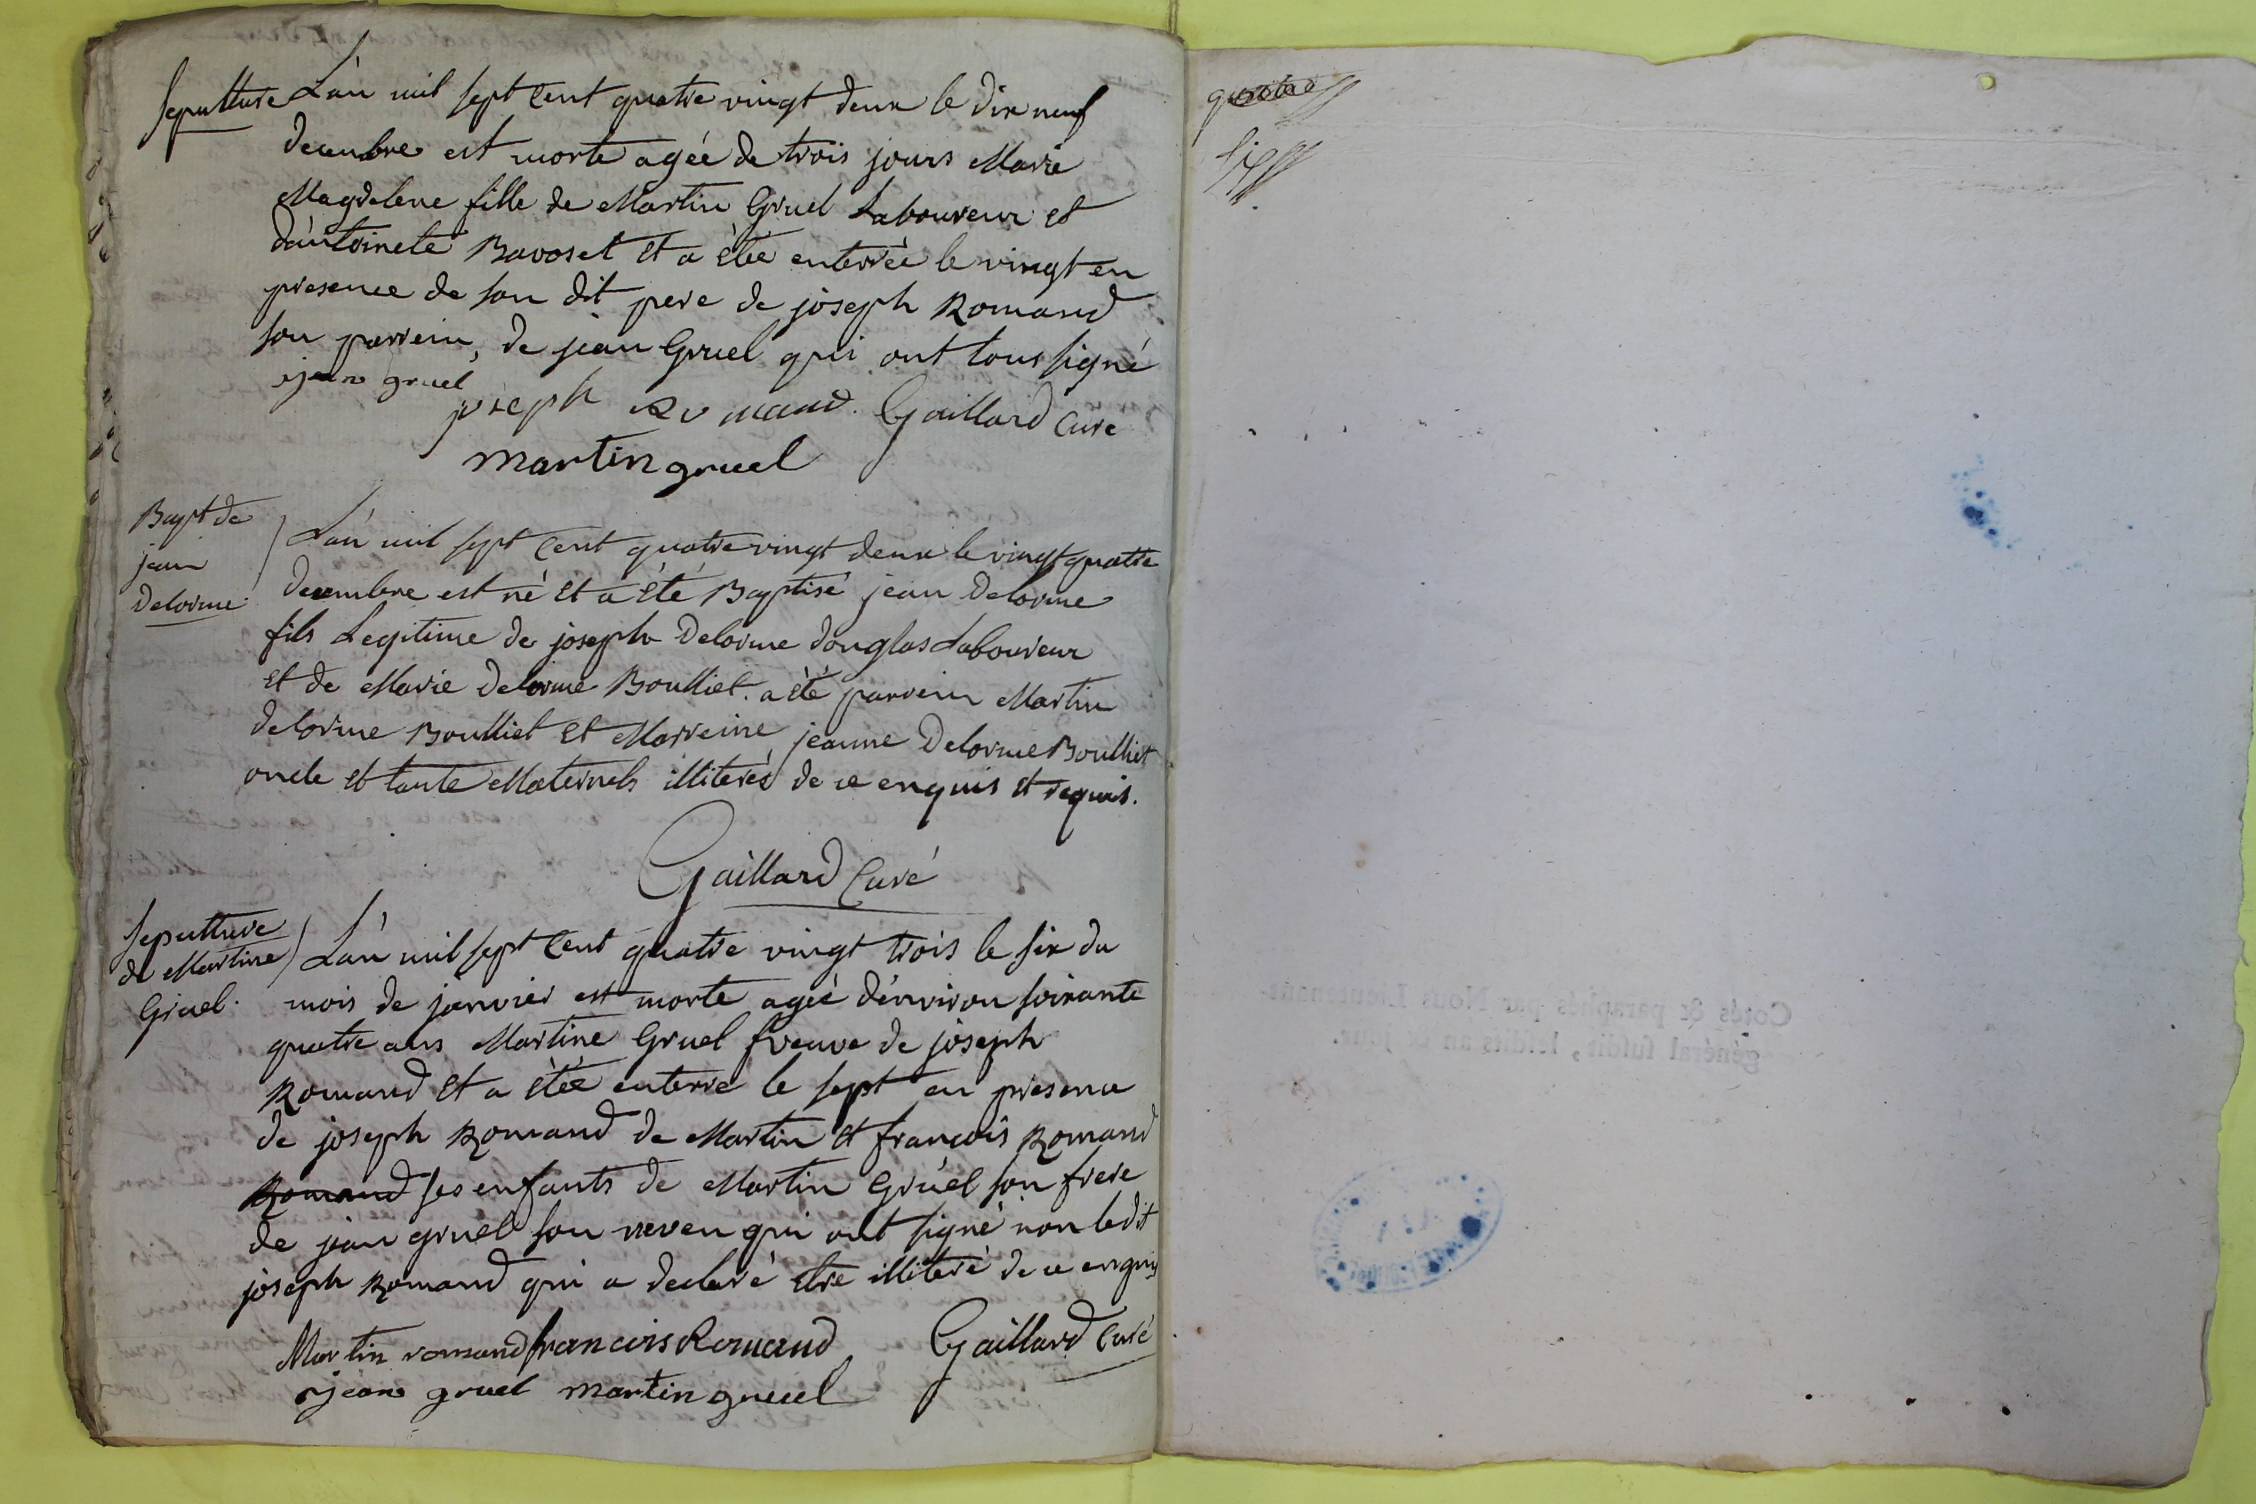 Sepulture
L'an mil sept cent quatre vingt deux le dix neuf
decembre est morte agée de trois jours Marie
Magdelene fille de Martin Gruel Laboureur et
d'antoinete Bavoset et a étée enterrée le vingt en
presence de son dit pere de joseph Romand
son parrein, de jean Gruel qui ont tous signé
jean gruel
joseph Romand. Gaillard Curé
martin gruel
Bapt de
jean
Delorme.
L'an mil sept cent quatre vingt deux le vingt quatre
decembre est né et a été Baptisé jean Delorme
fils Legitime de joseph Delorme donglas Laboureur
et de Marie Delorme Boulliet. a été parrein Martin
delorme Boulliet et Marreine jeanne Delorme Boulliet
oncle et tante Maternels illiterés de ce enquis et requis.
Gaillard Curé
Sepulture
de Martine
Gruel.
L'an mil sept cent quatre vingt trois le six du
mois de janvier est morte agée d'environ soixante
quatre ans Martine Gruel veuve de joseph
Romand et a étée enterré le sept en presence
de joseph Romand de Martin et françois Romand
Romand ses enfants de Martin Gruel son frere
de jean gruel son neveu qui ont signé non ledit
joseph Romand qui a declaré etre illiteré de ce enquis
Martin romand francois Romand Gaillard Curé
jean gruel martin gruel
Cotés & paraphés par Nous Lieutenant-
général susdit, lesdits an & jour.